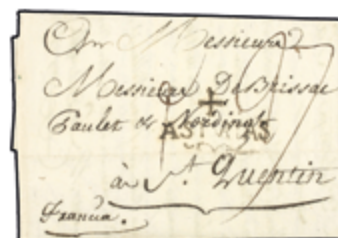 A Messieurs
Messieurs DeBrissac
Paulet & Nordingh
AS AS
à St. Quentin
Francia.